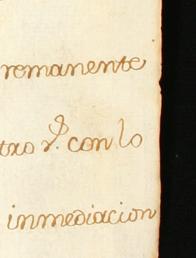 romanente
tras rl. con lo
inmediacion